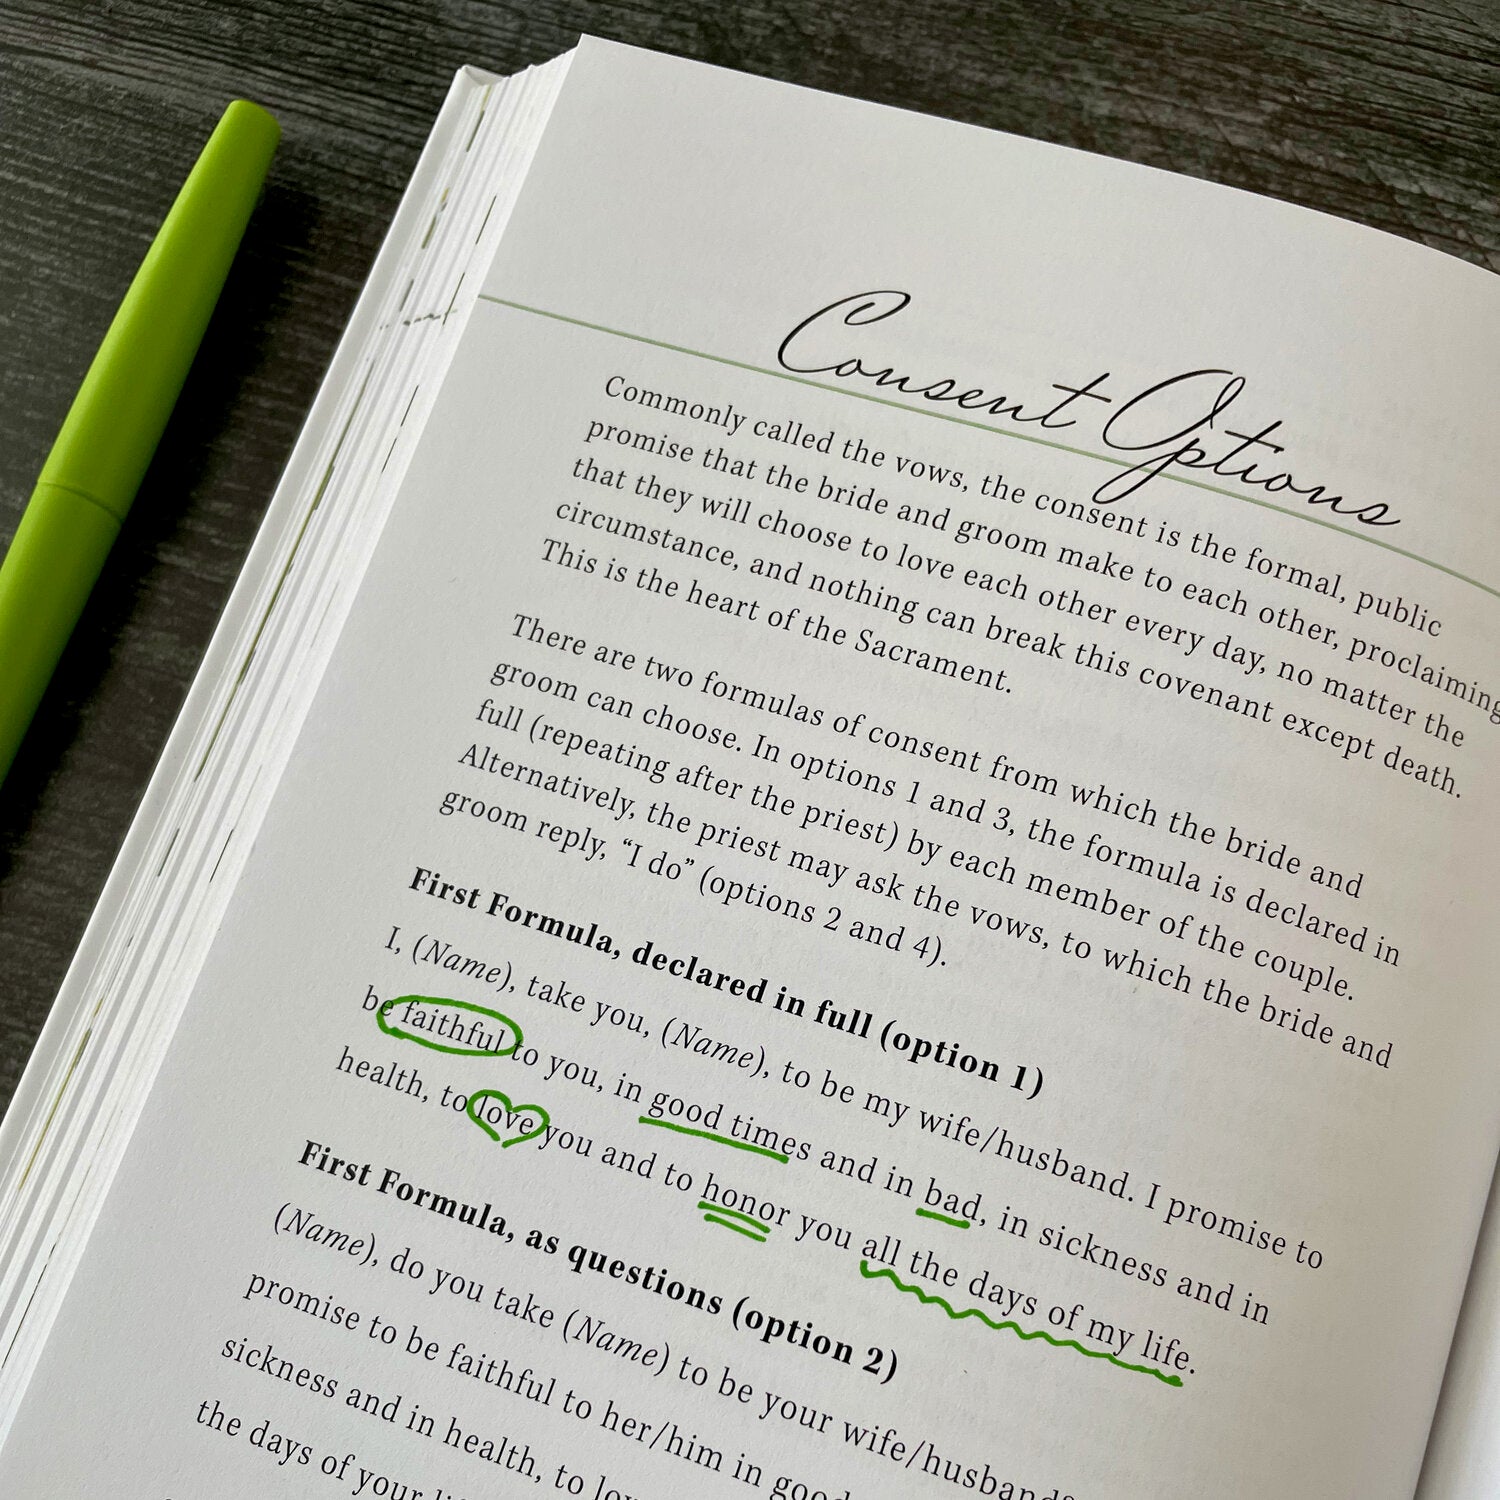 Consent Options
Commonly called the vows, the consent is the formal, public
promise that the bride and groom make to each other, proclaiming
that they will choose to love each other every day, no matter the
circumstance, and nothing can break this covenant except death.
This is the heart of the Sacrament.
There are two formulas of consent from which the bride and
groom can choose. In options 1 and 3, the formula is declared in
full (repeating after the priest) by each member of the couple.
Alternatively, the priest may ask the vows, to which the bride and
groom reply, “I do” (options 2 and 4).
First Formula, declared in full (option 1)
I, (Name), take you, (Name), to be my wife/husband. I promise to
be faithful to you, in good times and in bad, in sickness and in
health, to love you and to honor you all the days of my life.
First Formula, as questions (option 2)
(Name), do you take (Name) to be your wife/husband?
promise to be faithful to her/him in good
sickness and in health, to
the days of your